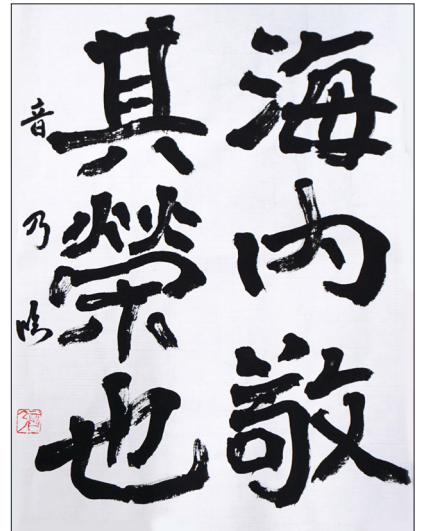 海内敬
其榮也
音乃臨